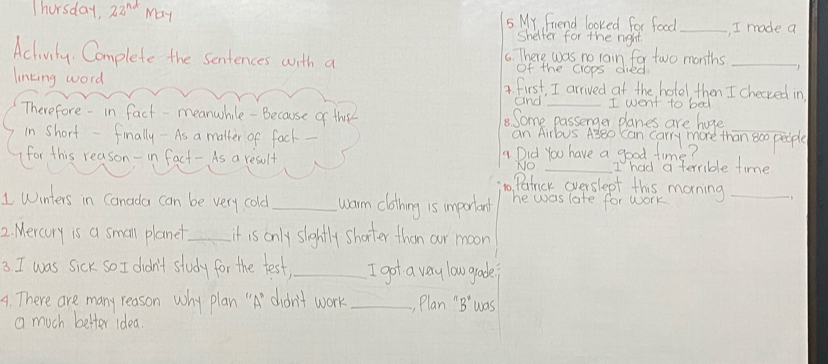 Thursday, 22nd May
Activity. Complete the sentences with a
linking word
Therefore - in fact - meanwhile - Because of this -
in short - finally - As a matter of fact -
for this reason - in fact - As a result
1 Winters in Canada can be very cold ______ warm clothing is important
2. Mercury is a small planet ______ it is only slightly shorter than our moon
3. I was sick so I didn't study for the test, ______ I got a very low grade.
4. There are many reason why plan "A" didn't work ______, Plan "B" was
a much better idea.
5 My friend looked for food ______, I made a
shelter for the night.
6. There was no rain for two months ______,
of the crops died.
7. first, I arrived at the hotel, then I checked in,
and ______ I went to bed
8. Some passenger planes are huge ______
an Airbus A380 can carry more than 800 people
9 Did you have a good time?
No ______ I had a terrible time
10. Patrick overslept this morning ______,
he was late for work